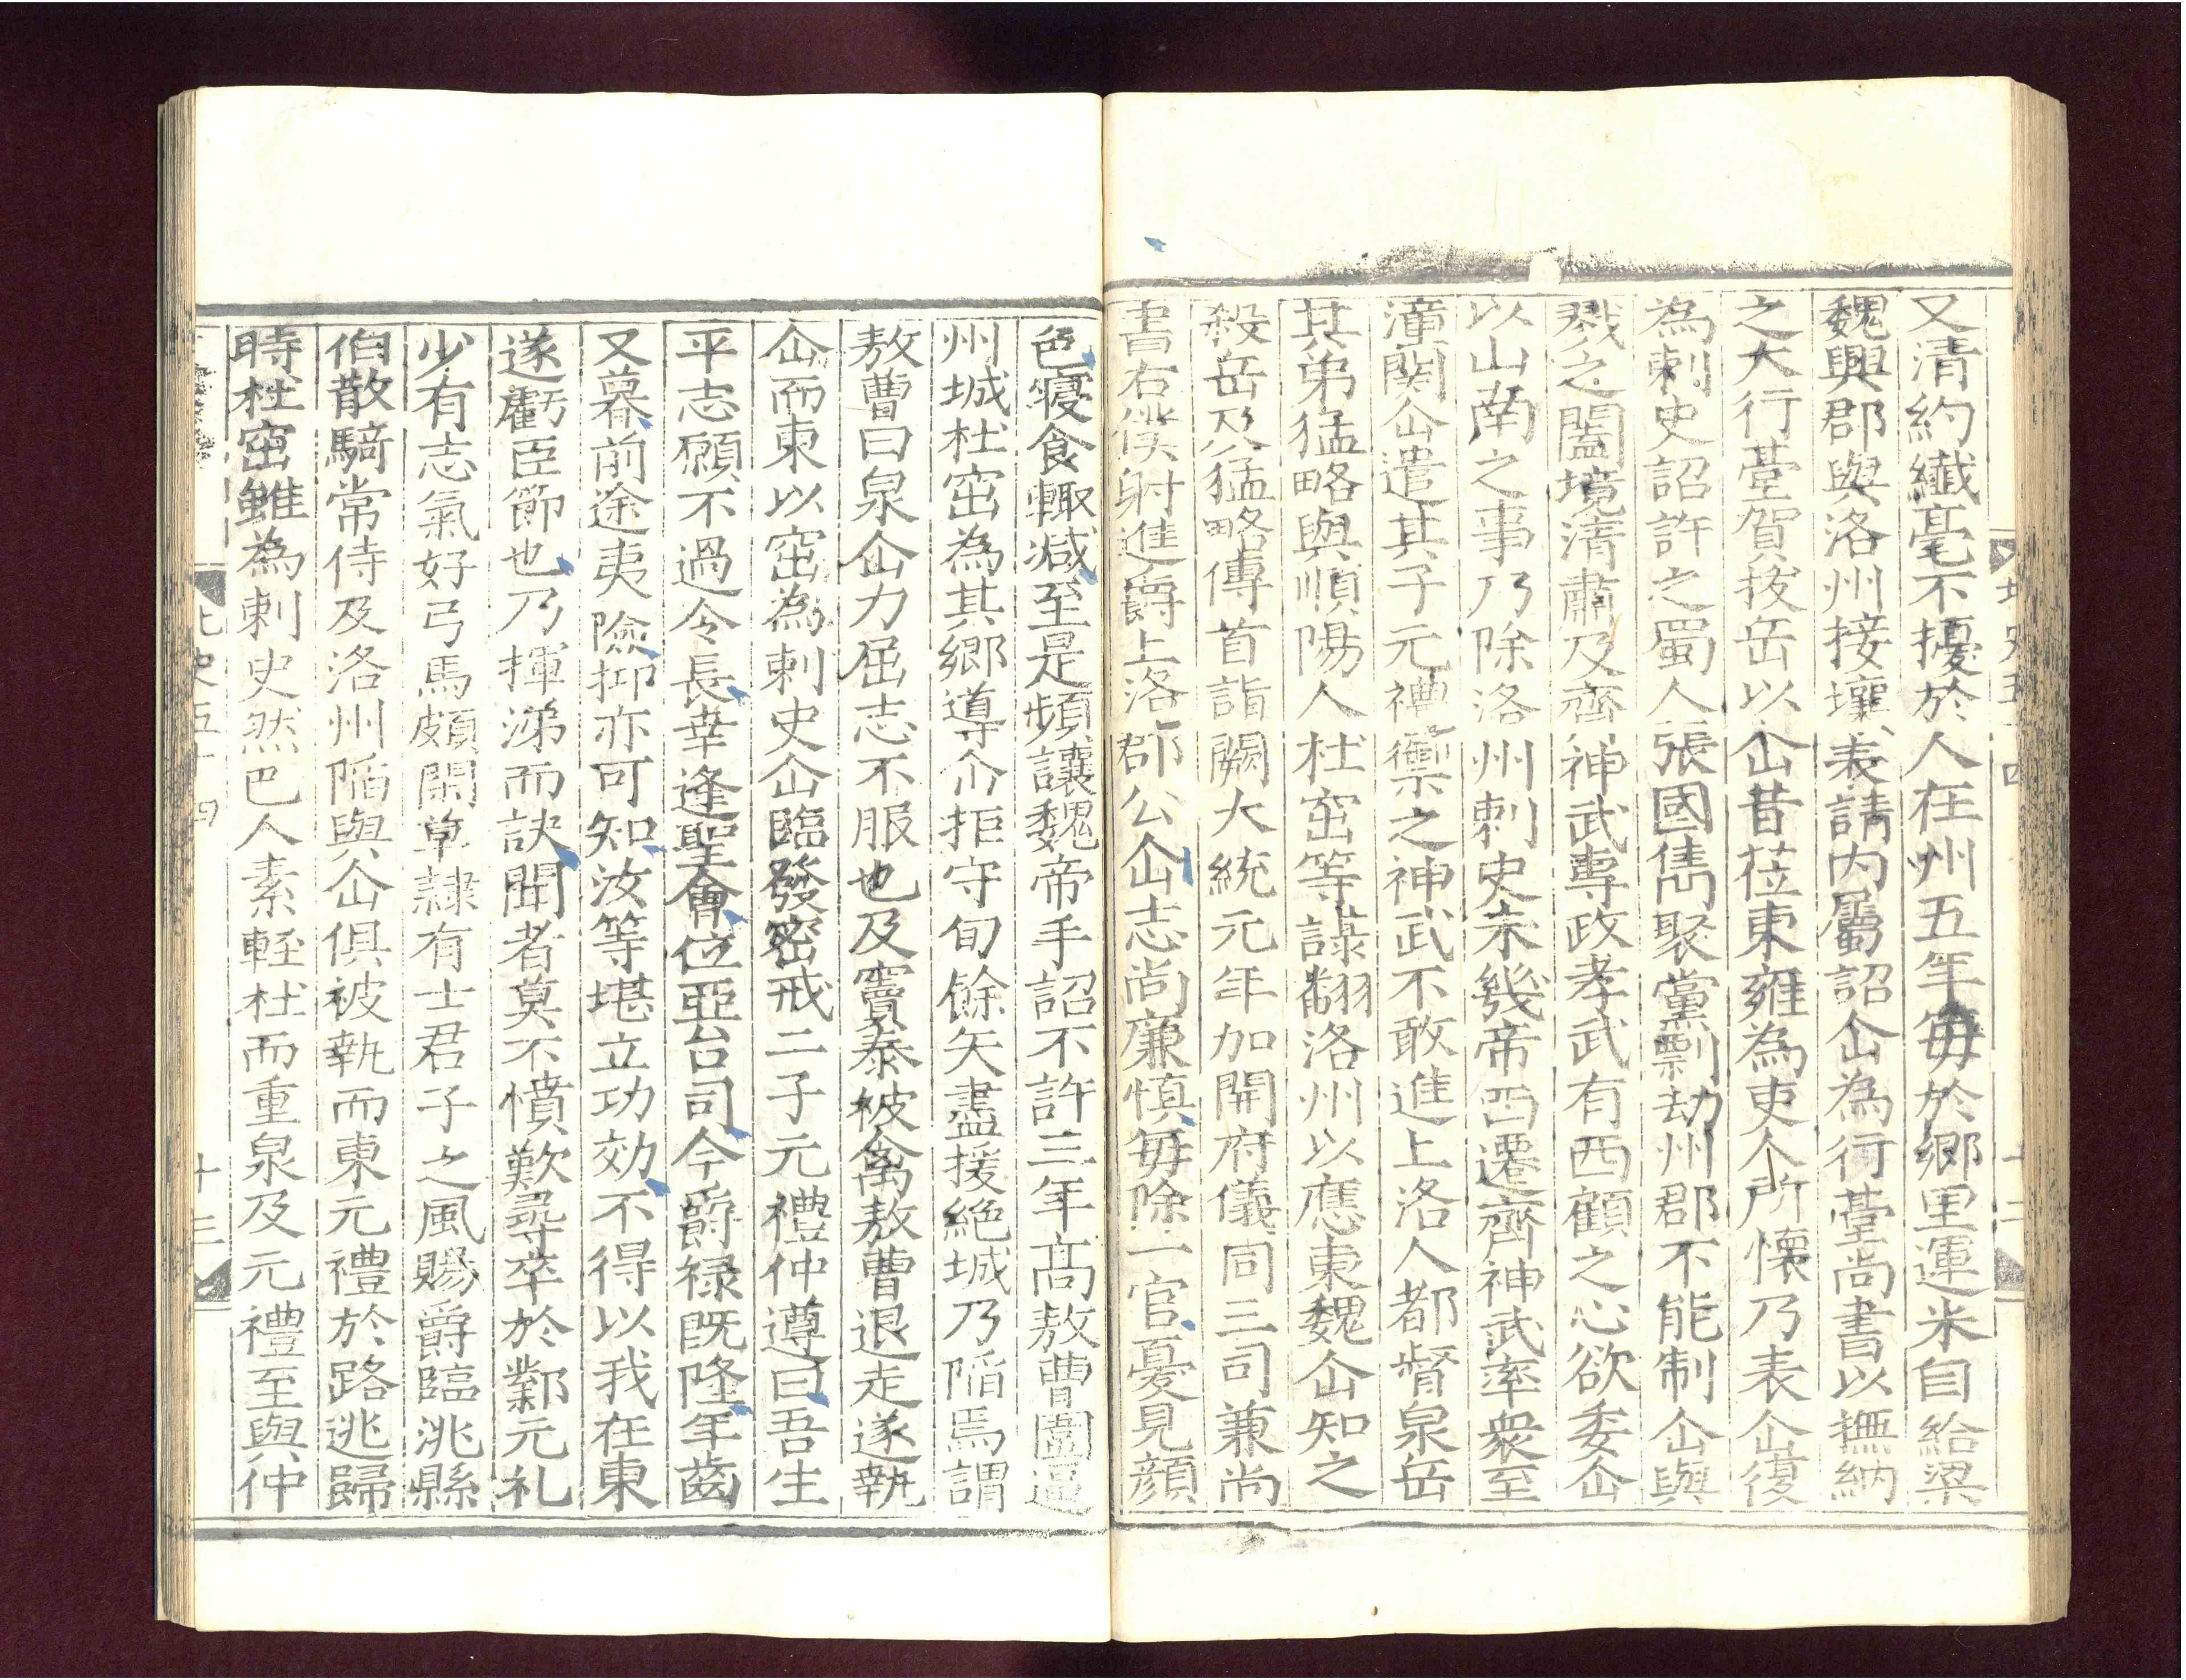 又清約纎毫不擾於人在州五年每於郷里運米自給梁
魏興郡與洛州接壤表請内屬詔仚為行臺尚書以撫納
之大行臺賀拔岳以仚昔莅東雍為吏人所懷乃表仚復
為剌史詔許之蜀人張國雋聚黨剽劫州郡不能制仚與
戮之闔境清肅及齊神武専政孝武有西顧之心欲委仚
以山南之事乃除洛州剌史未幾帝西遷齊神武率衆至
潼関仚遣其子元禮禦之神武不敢進上洛人都督泉岳
其弟猛略與順陽人杜窋等謀翻洛州以應東魏仚知之
殺岳及猛略傳首詣闕大統元年加開府儀同三司兼尚
書右僕射進爵上洛郡公仚志尚廉慎每除一官憂見顔
色寑食輙减至是頻讓魏帝手詔不許三年髙敖曹圍逼
州城杜窋為其郷導仚拒守旬餘矢盡援絶城乃陷焉謂
敖曹曰泉仚力屈志不服也及竇泰被禽敖曹退走遂執
仚而東以窋為剌史仚臨發密戒二子元禮仲遵曰吾生
平志願不過令長幸逢聖會位亞台司今爵禄既隆年齒
又暮前途夷險抑亦可知汝等堪立功効不得以我在東
遂虧臣節也乃揮涕而訣聞者莫不憤歎尋卒於鄴元礼
少有志氣好弓馬頗閑草隷有士君子之風賜爵臨洮縣
伯散騎常侍及洛州陷與仚俱被執而東元禮於路逃歸
時杜窋雖為剌史然巴人素輕杜而重泉及元禮至與仲
北史五十四
十三